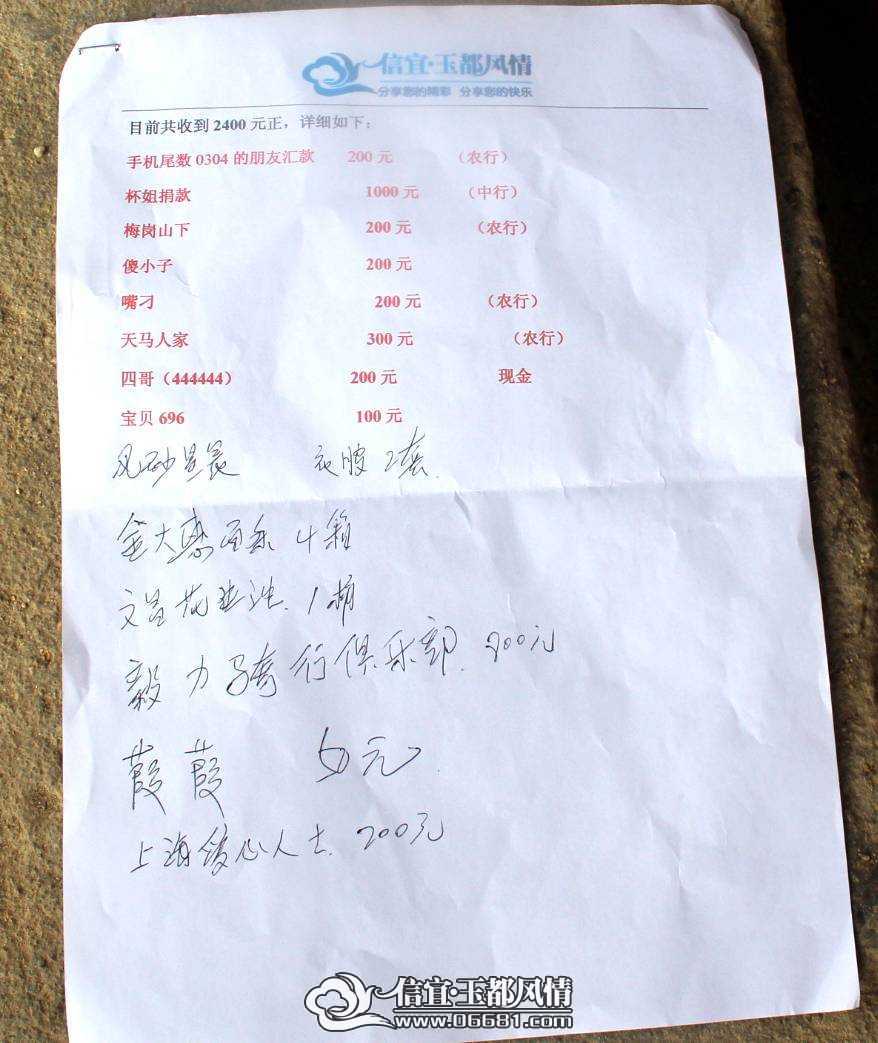 信宜·玉都风情
分享您的精彩 分享您的快乐
目前共收到 2400 元正，详细如下：
手机尾数 0304 的朋友汇款 200 元 （农行）
杯姐捐款 1000 元 （中行）
梅岗山下 200 元 （农行）
傻小子 200 元
嘴刁 200 元 （农行）
天马人家 300 元 （农行）
四哥（444444） 200 元 现金
宝贝 696 100 元
风砂星辰 衣服 2套
金大惠面条 4箱
文昌花生油. 1桶
毅力骑行俱乐部. 900元
葭葭 50元
上海爱心人士. 200元
信宜·玉都风情
www.06681.com